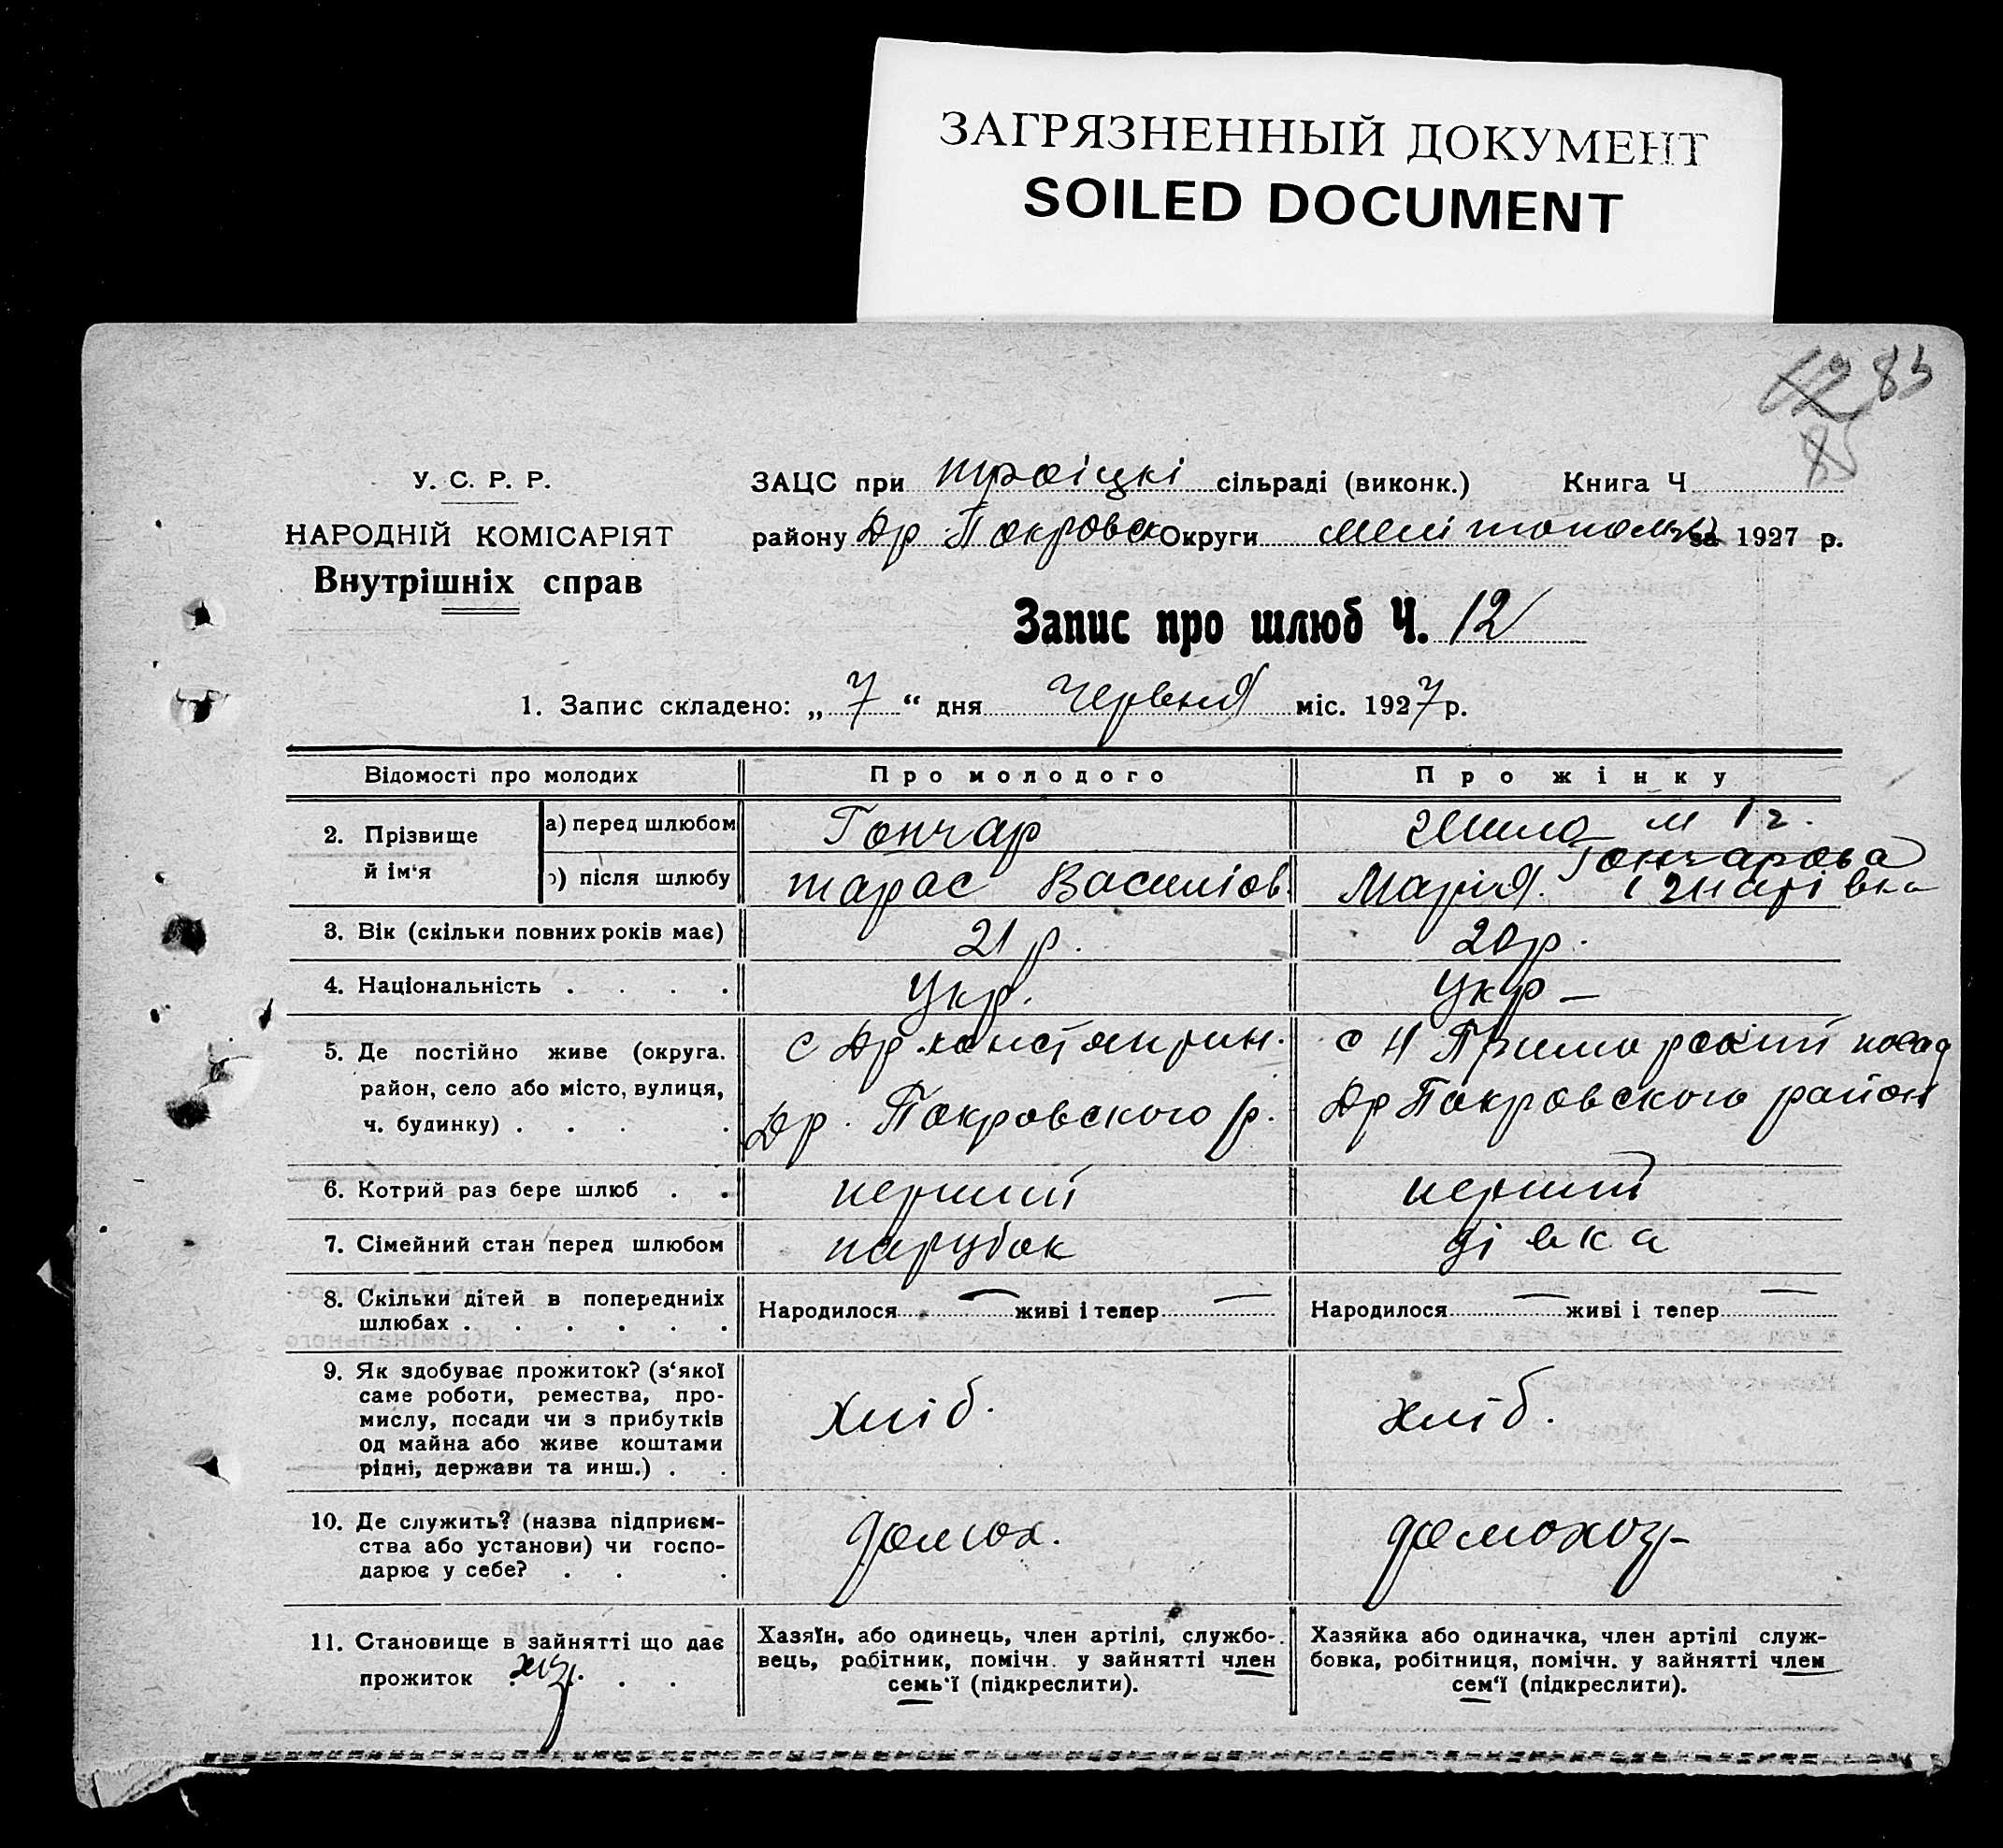 ЗАГРЯЗНЕННЫЙ ДОКУМЕНТ
SOILED DOCUMENT
83
У. С. Р. Р.
НАРОДНІЙ КОМІСАРІЯТ
Внутрішніх справ
ЗАЦС при троіцкі сільраді (виконк.) Книга Ч
району Др Покровск Округи за 1927 р.
Запис про шлюб Ч. 12
1. Запис складено: „ 7 “ дня червня міс. 1927 р.
Відомості про молодих
Про молодого
Про жінку
2. Прізвище й ім‘я
а) перед шлюбом
Гончар
Гончарова
після шлюбу
тарас Василіов.
Марія
3. Вік (скільки повних років має)
21 р.
20 р.
4. Національність . . . .
Укр.
Укр –
5. Де постійно живе (округа.
район, село або місто, вулиця,
ч. будинку) . . . .
с Др.
Др. Покровского р.
с Н
Др Покровского район
6. Котрий раз бере шлюб . .
перший
перший
7. Сімейний стан перед шлюбом
парубок
дівка
8. Скільки дітей в попередніх
шлюбах . . . . . .
Народилося — живі і тепер —
Народилося — живі і тепер —
9. Як здобуває прожиток? (з‘якої
саме роботи, ремества, про-
мислу, посади чи з прибутків
од майна або живе коштами
рідні, держави та инш.) . .
хліб.
хліб.
10. Де служить? (назва підприєм-
ства або установи) чи госпо-
дарює у себе? . . .
домох.
домохоз–
11. Становище в зайнятті що дає
прожиток . . .
Хазяїн, або одинець, член артілі, службо-
вець, робітник, помічн. у зайнятті член
семь‘ї (підкреслити).
Хазяйка або одиначка, член артілі служ-
бовка, робітниця, помічн. у зайнятті член
сем‘ї (підкреслити).